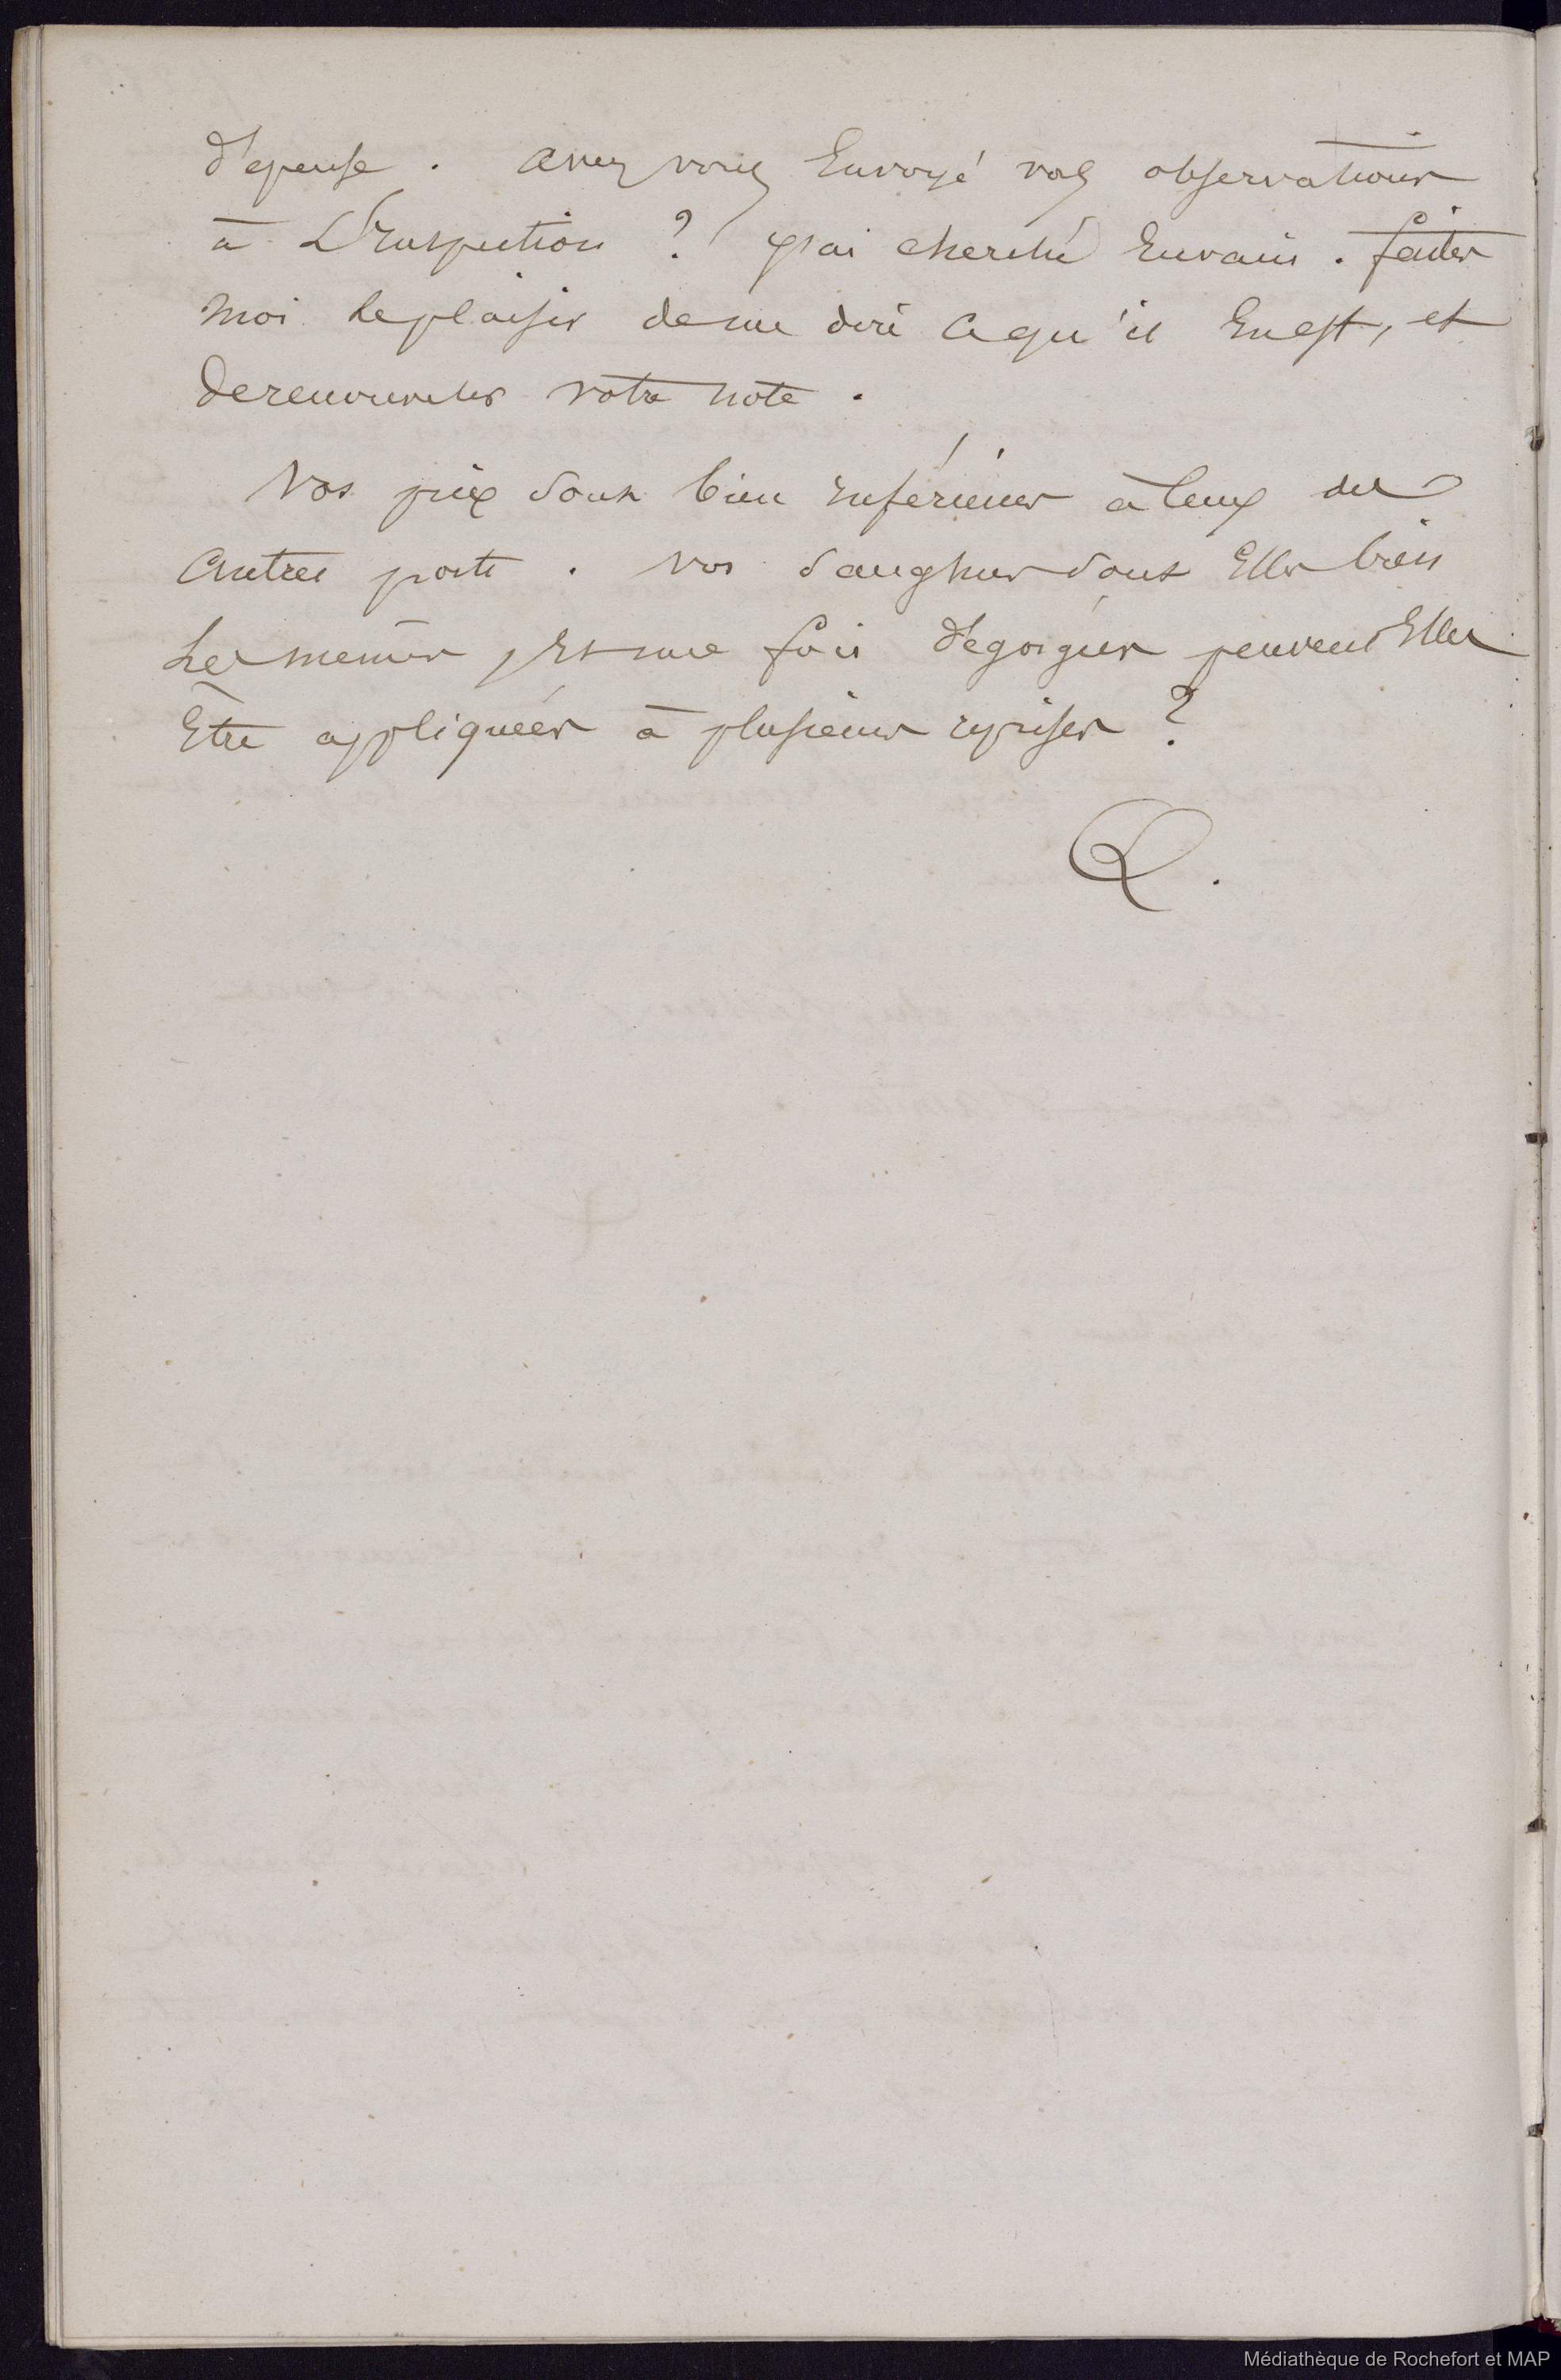 dépense. avez vous Envoyé vos observations
à L'Inspection ? j'ai cherché Envain. faites
moi Leplaisir deme dire cequ'il Enest, et
derenouveler votre note.
Vos prix sont bien inférieurs à ceux des
autres ports. vos sangsues sont Elles bien
Les mêmes, Et une fois dégorgées peuvent Elles
Être appliquées à plusieurs reprises ?
Q.
Médiathèque de Rochefort et MAP